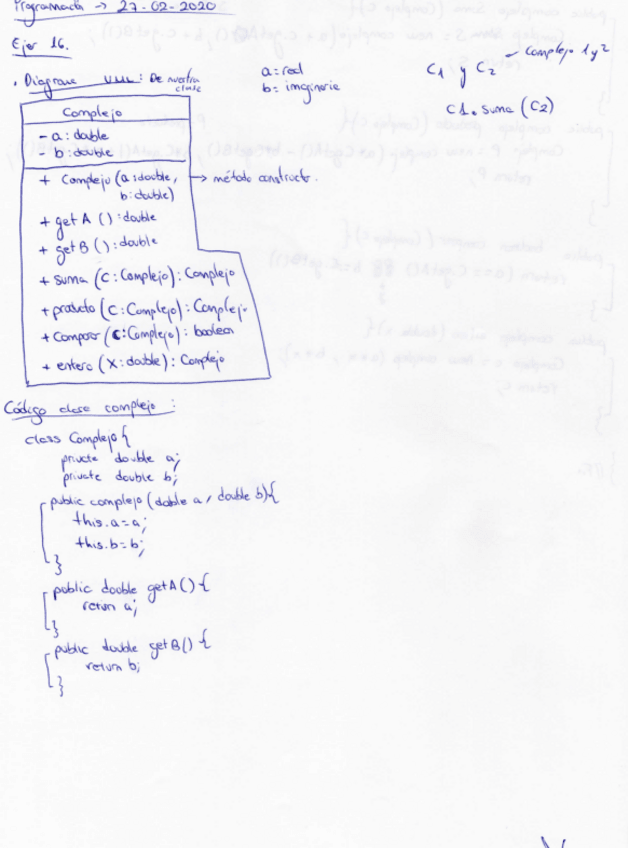 Programación → 27-02-2020
Ejer 16.
. Diagrama UML: De nuestra clase
a = real
b = imaginario
C1 y C2 – Complejo 1 y 2
C1. suma (C2)
Complejo
- a : double
- b : double
+ Complejo (a : double, → método constructor.
b : double)
+ get A () : double
+ get B () : double
+ suma (C : Complejo) : Complejo
+ producto (C : Complejo) : Complejo
+ compara (C : Complejo) : boolean
+ entero (X : double) : Complejo
Código clase complejo :
class Complejo {
private double a;
private double b;
public complejo (doble a, double b){
this.a = a;
this.b = b;
}
public double get A () {
return a;
}
public double get B() {
return b;
}